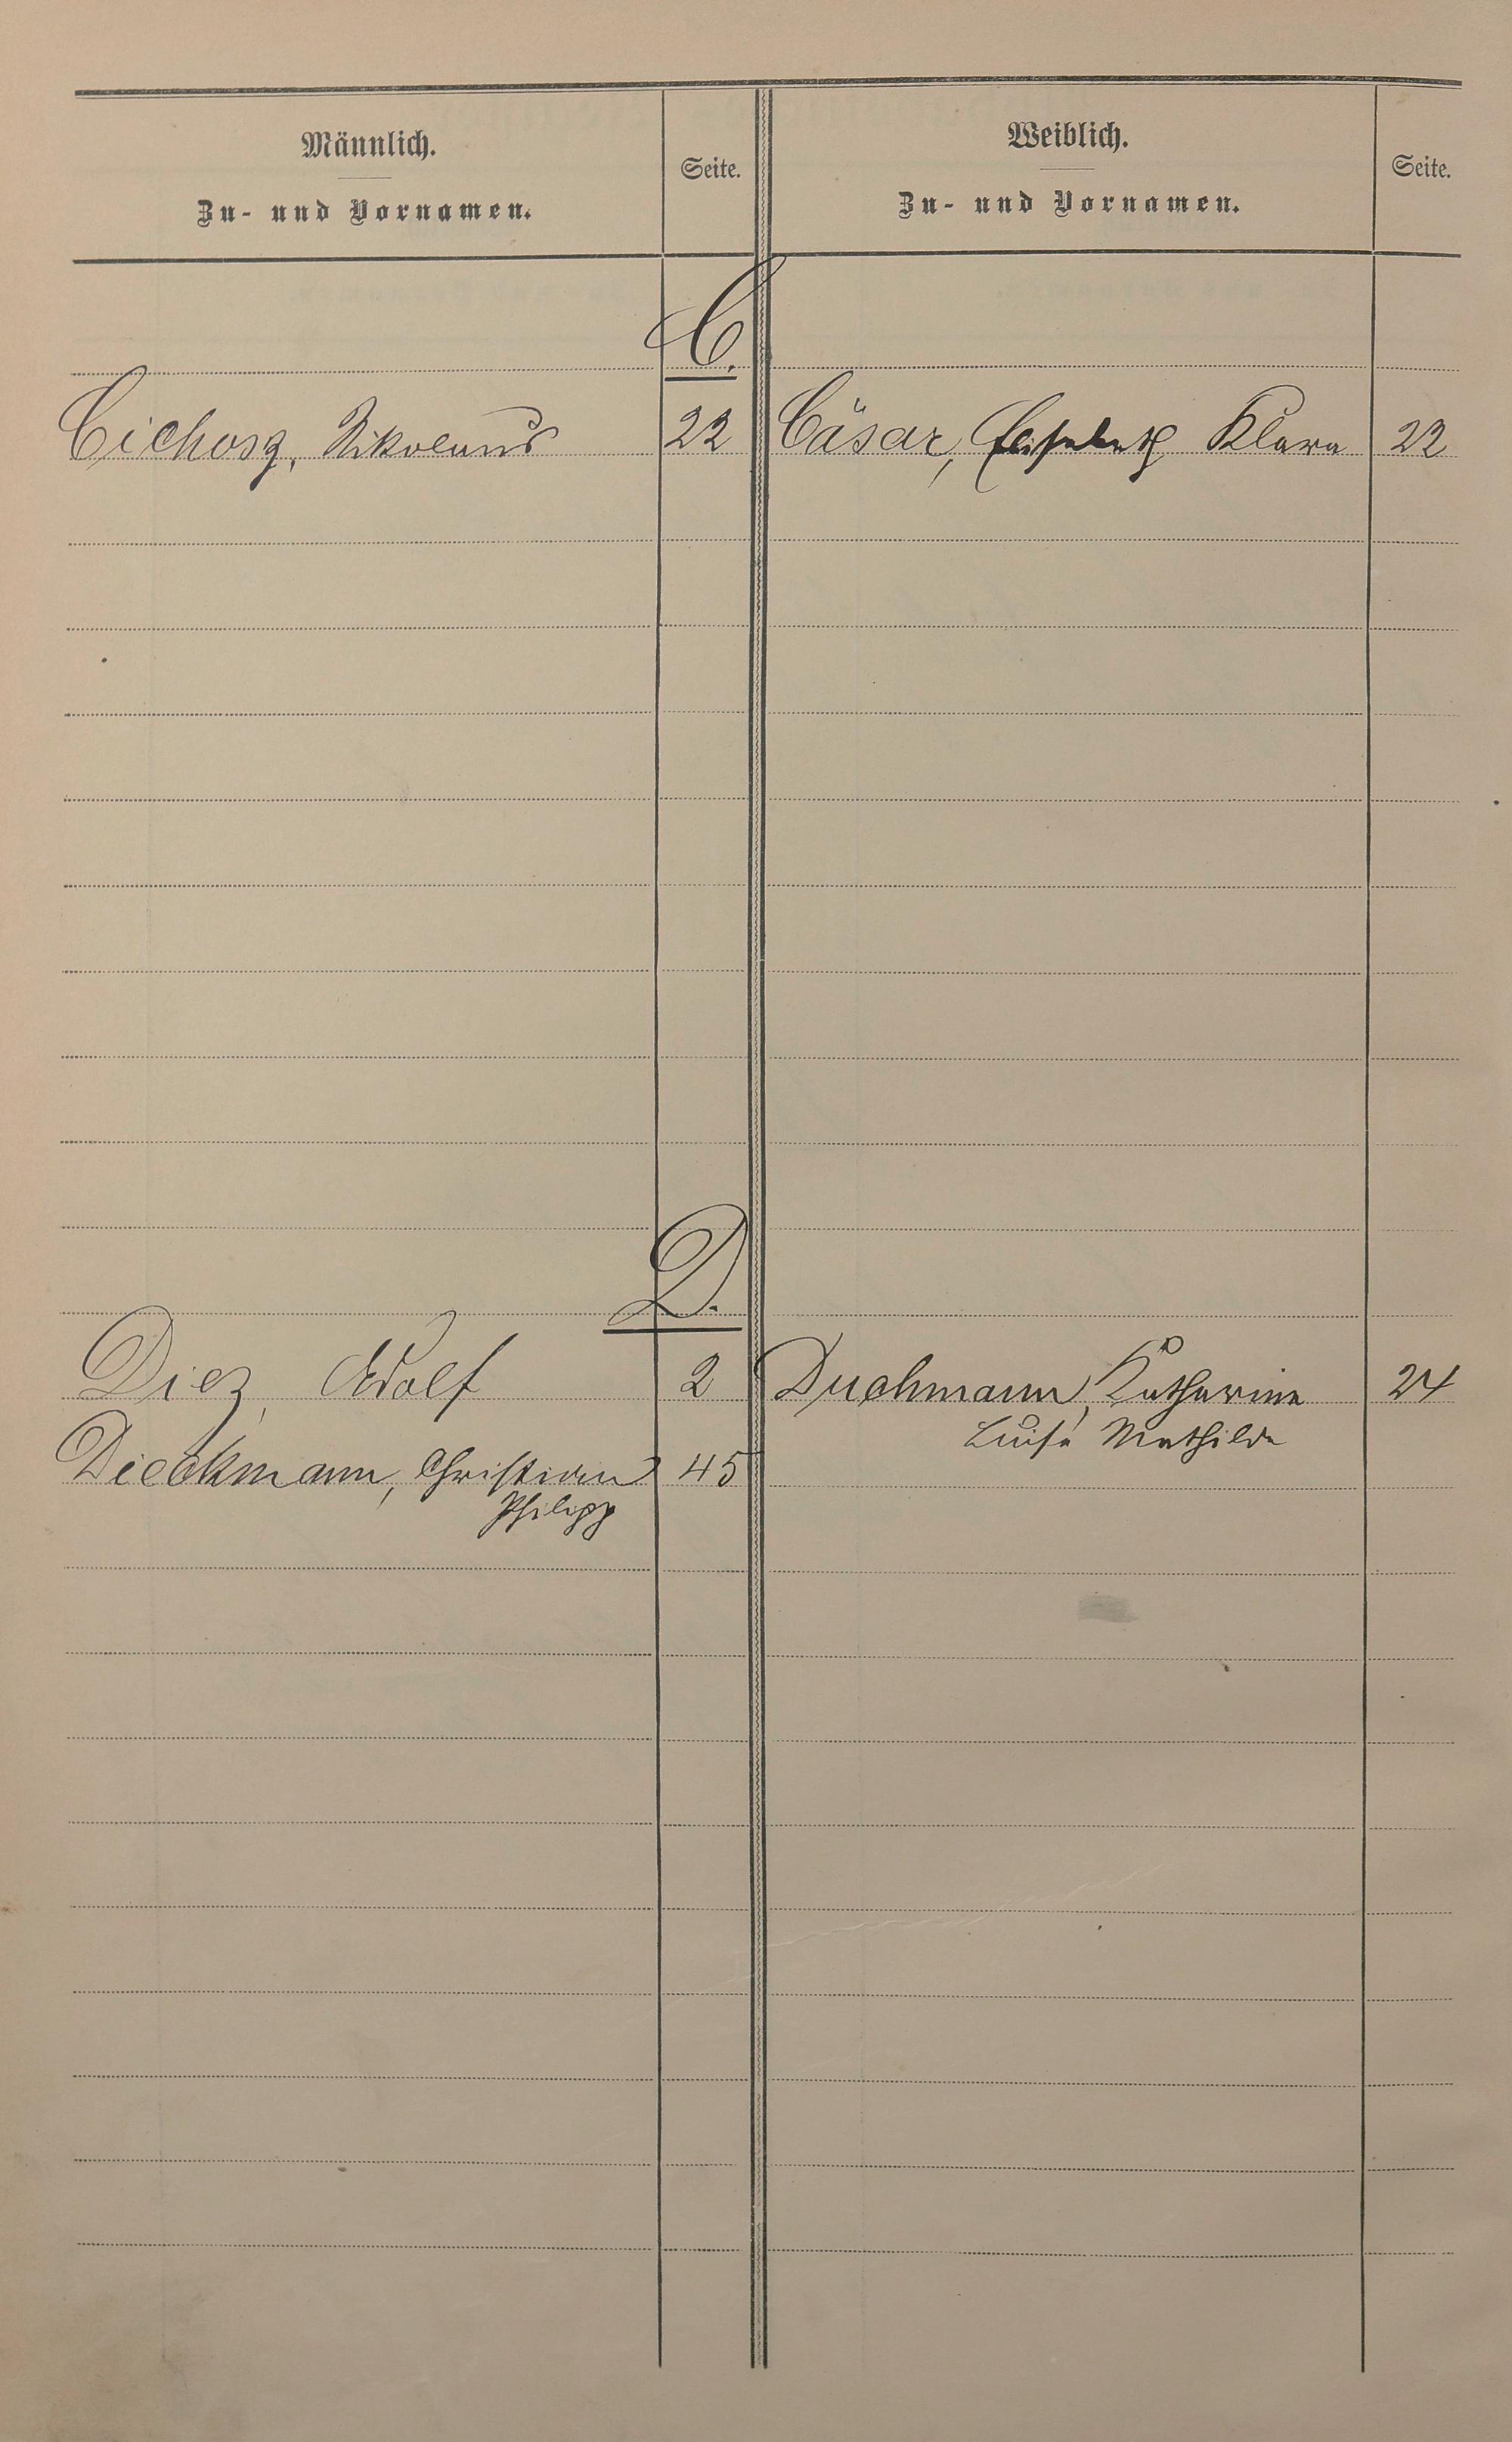 Männlich.
Zu- und Vornamen.
Seite.
Weiblich.
Zu- und Vornamen.
Seite.
C.
Cichosz, Nikolaus 22 Cäsar, Elisabeth Klara 22
D.
Diez, Adolf 2 Duchmann, Katharina 24
Luise Mathilde
Dieckmann, Christian 45
Philipp